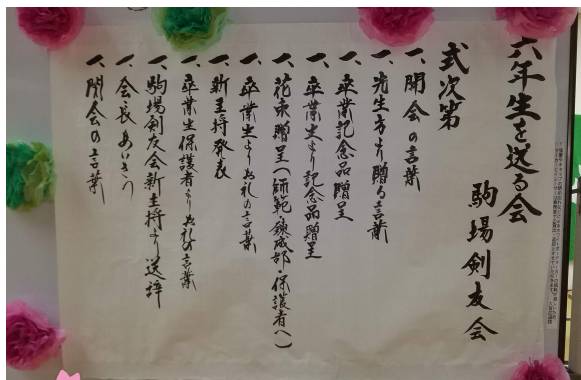 六年生を送る会
駒場剣友会
式次第
一、開会の言葉
一、先生方より贈る言葉
一、卒業記念品贈呈
一、卒業生より記念品贈呈
一、花束贈呈(師範・錬成部・保護者へ)
一、卒業生よりお礼の言葉
一、新主将発表
一、卒業生保護者よりお礼の言葉
一、駒場剣友会新主将より送辞
一、会長あいさつ
一、閉会の言葉